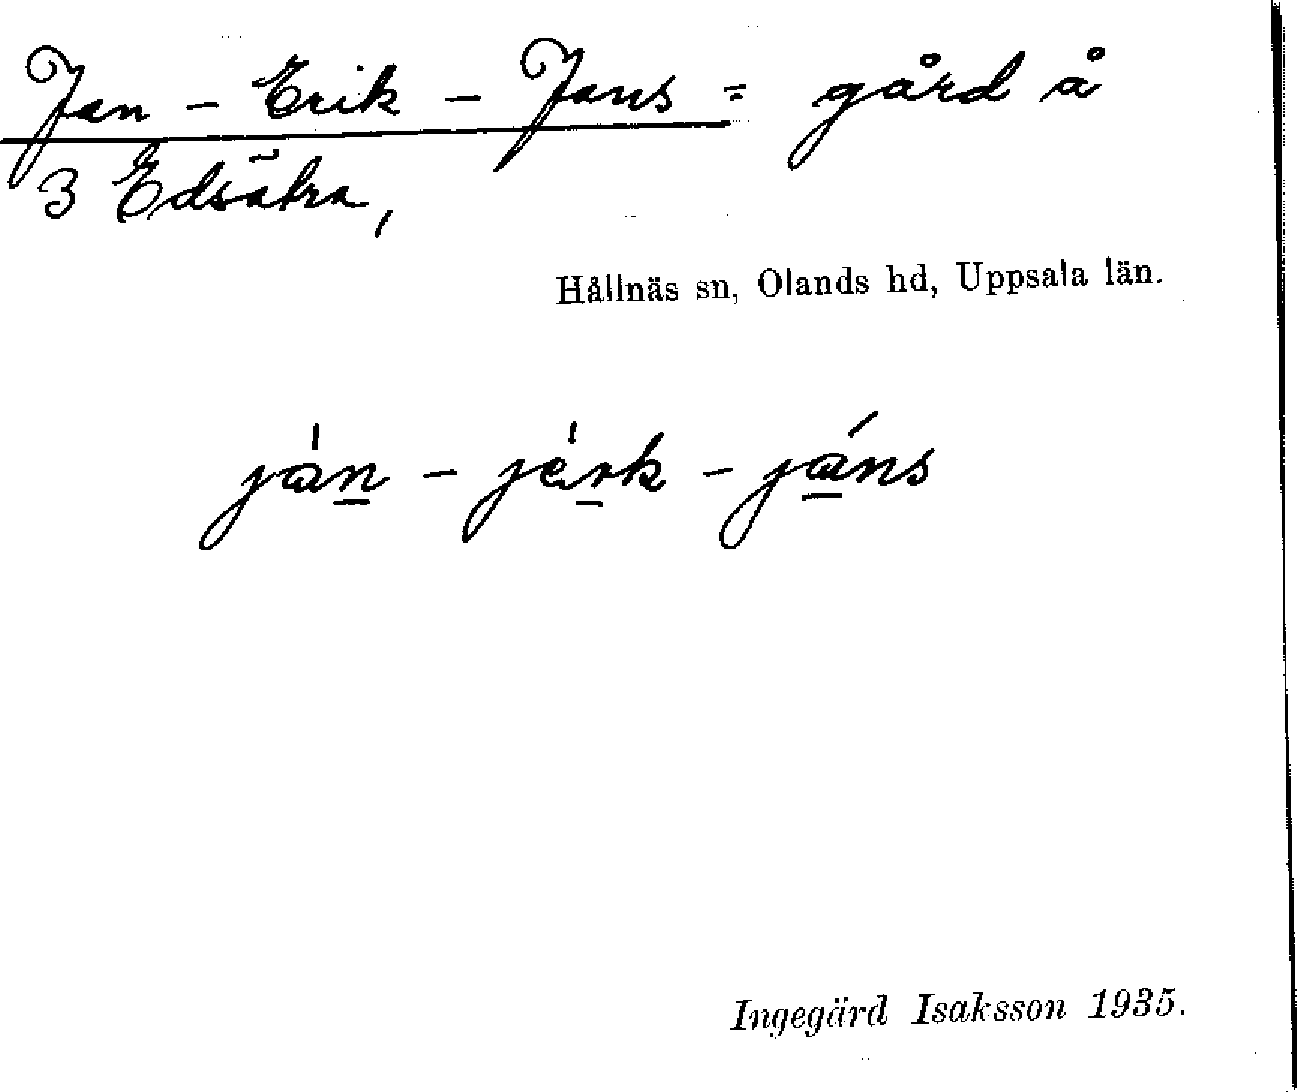 Jan - Erik - Jans = gård å
3 Edsätra,
Hållnäs sn, Olands hd, Uppsala län.
ja̍n - je̍rk - jáns
Ingegärd Isaksson 1935.